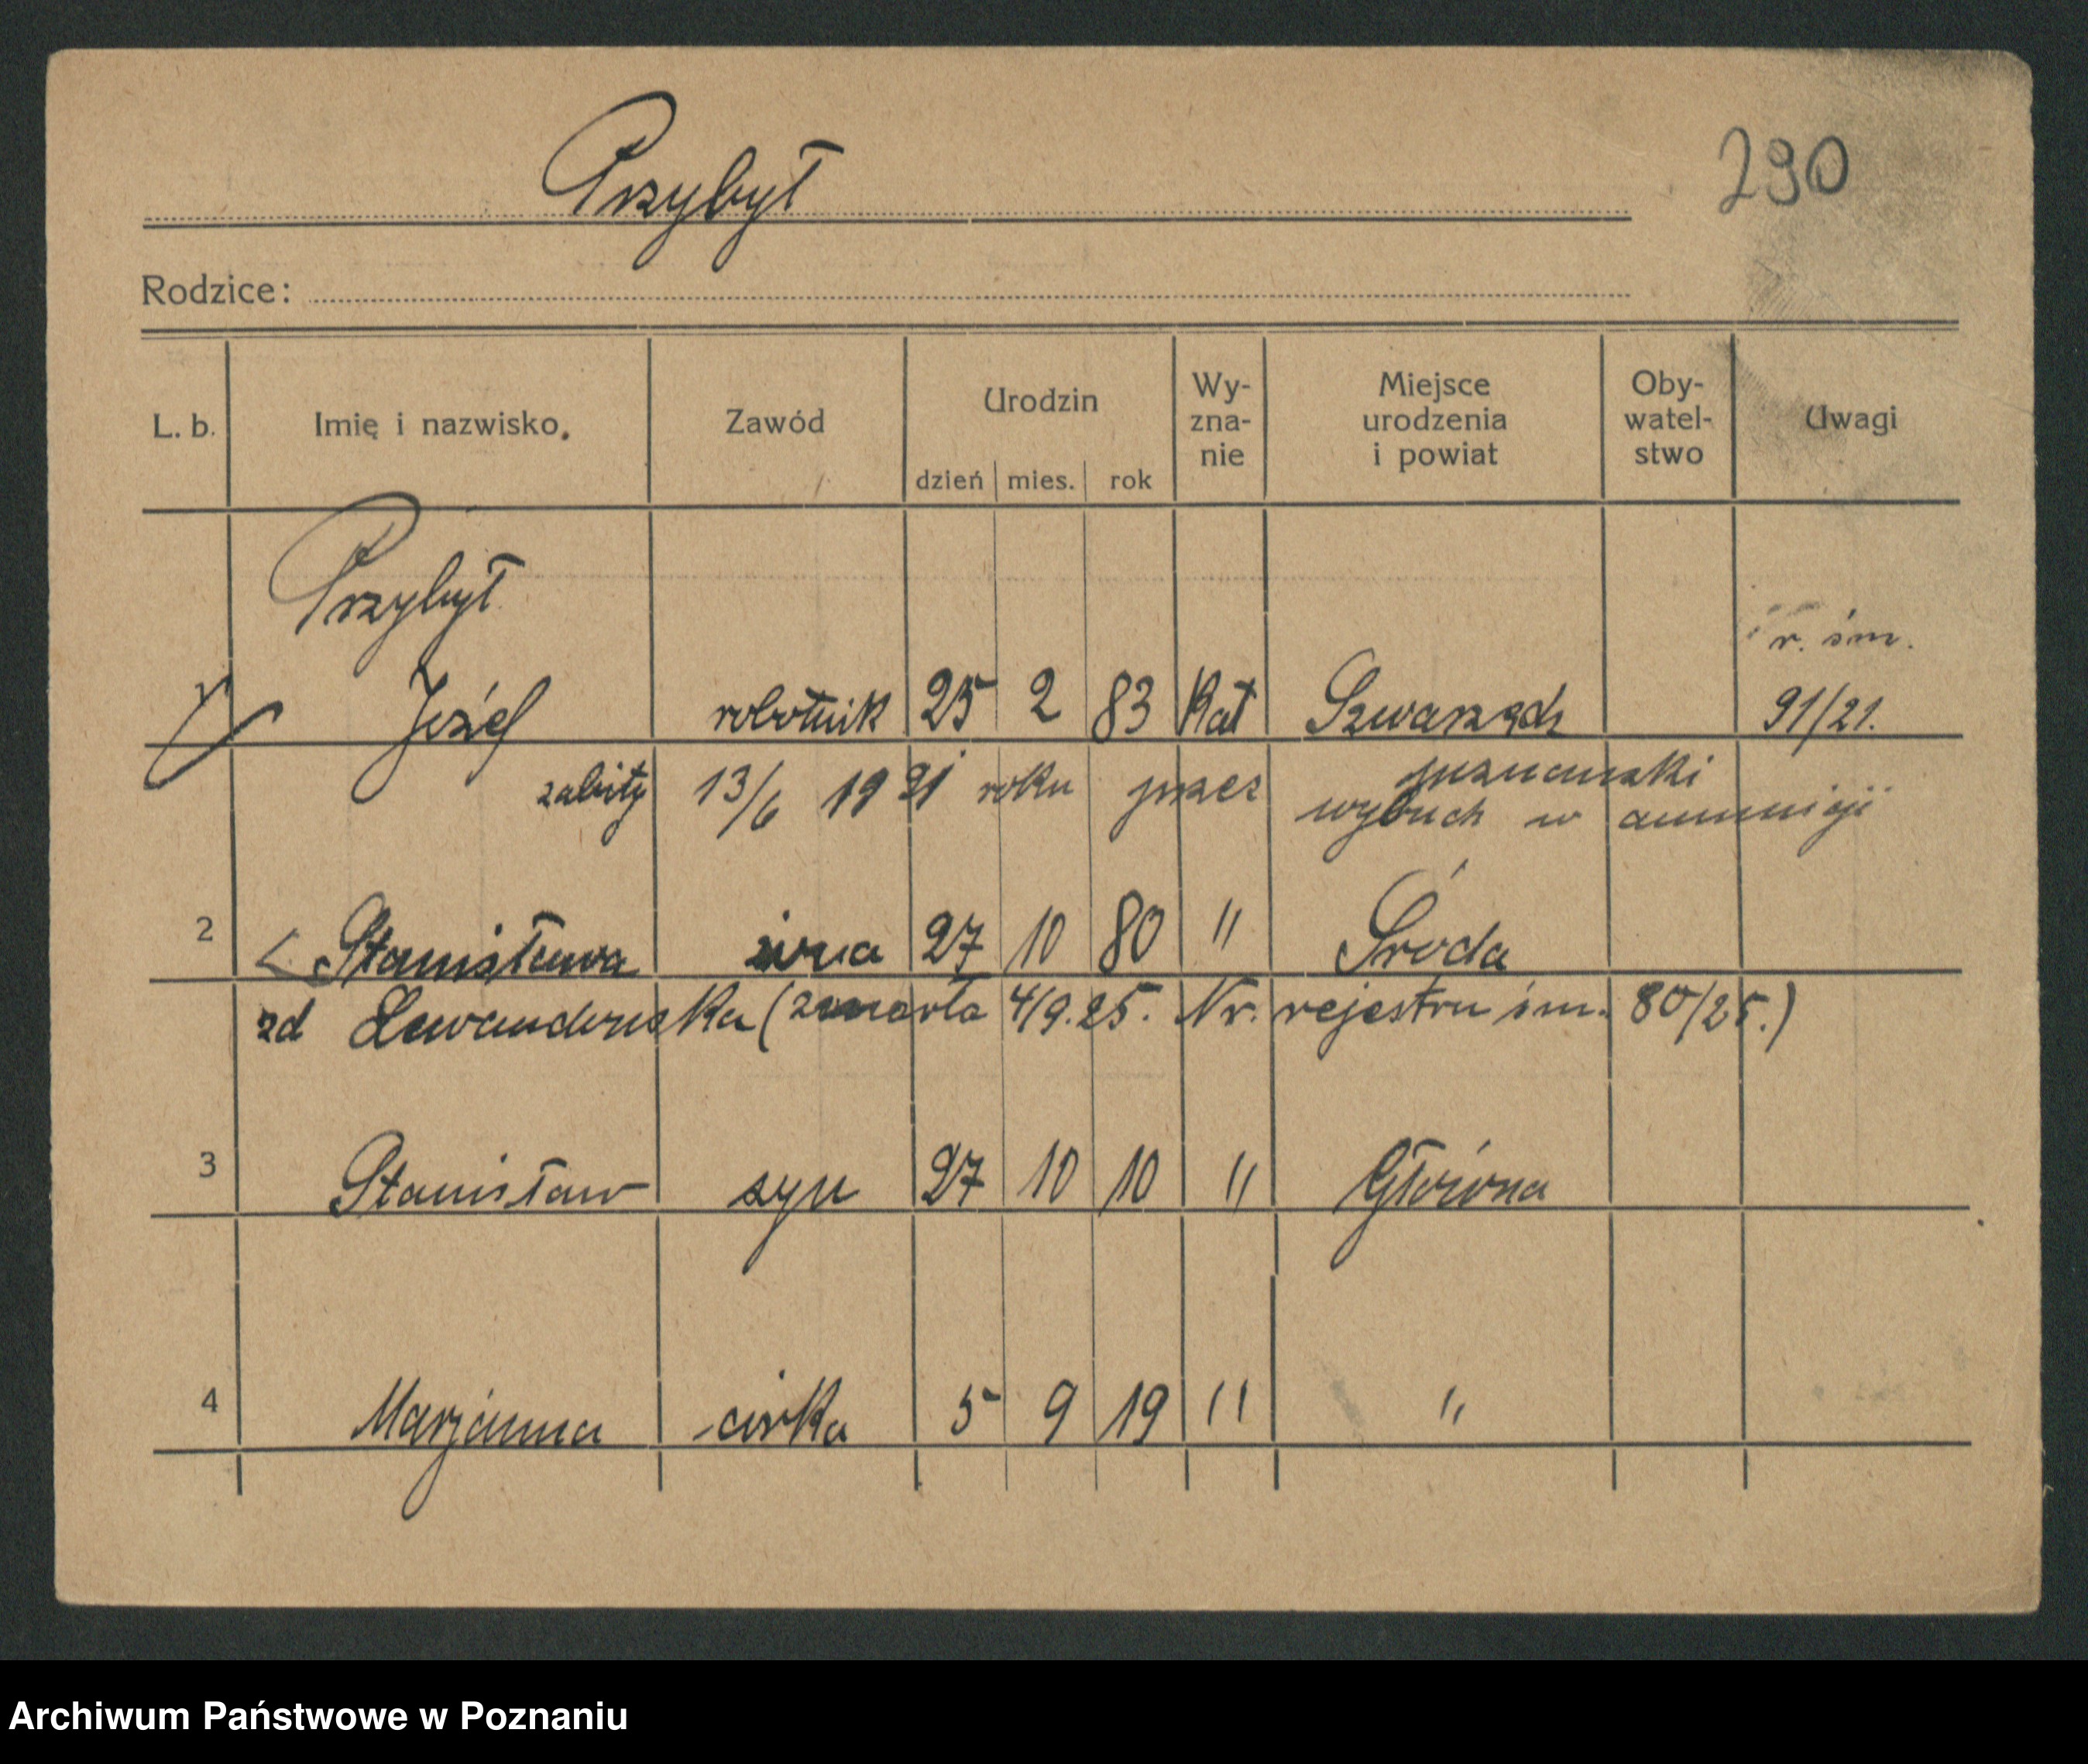 Przybył
290
Rodzice:
L. b. Imię i nazwisko. Zawód Urodzin dzień mies. rok Wy-zna-nie Miejsce urodzenia i powiat Oby-watel-stwo Uwagi
Przybył
r. śm.
Józef robotnik 25 2 83 Kat Szwarządz 91/21.
poznański
zabity 13/6 1921 roku przez wybuch w amunicji
2 Stanisława żona 27 10 80 " Środa
zd Lewandowska (zmarła 4/9.25. Nr. rejestru śm. 80/25.)
3 Stanisław syn 27 10 10 " Główna
4 Marjanna córka 5 9 19 " "
Archiwum Państwowe w Poznaniu